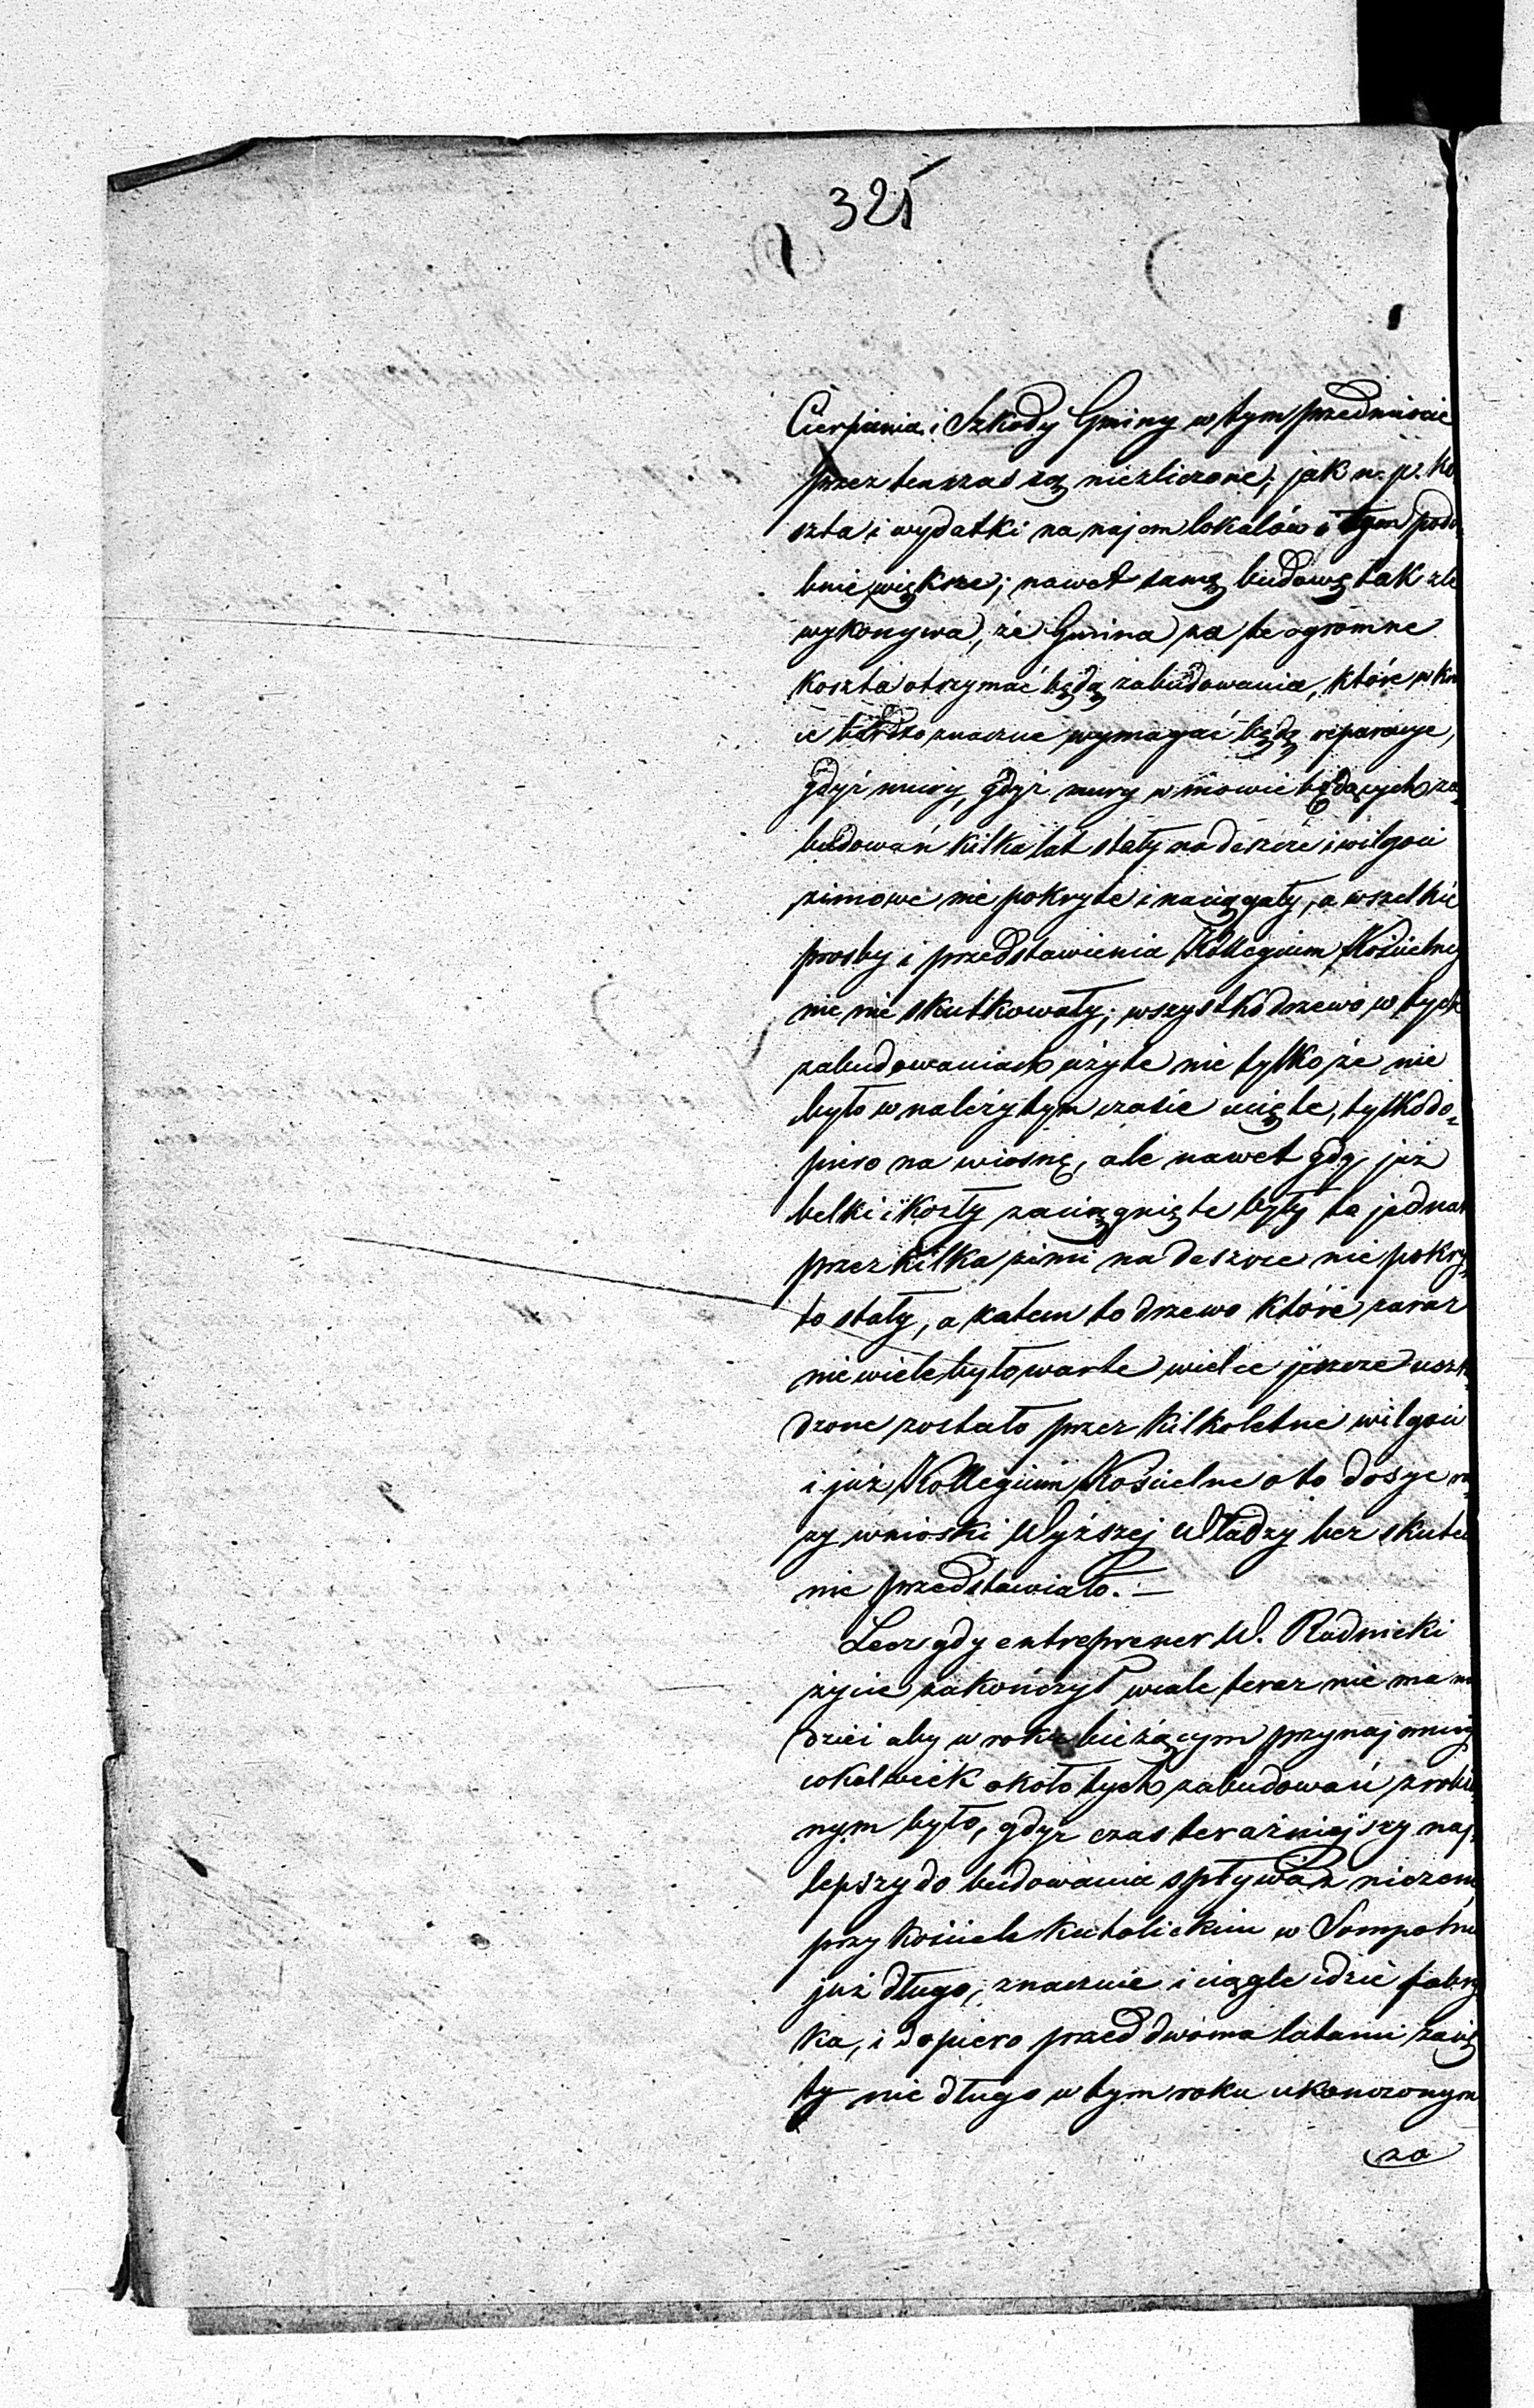 325
Cierpienia i Szkody Gminy w tym przedmiocie
przez ten czas są niezliczone; jak n. p. ko
szta i wydatki na najem lokalów i tym podo
bnie większe; nawet samą budowę tak źle
wykonywa, że Gmina za te ogromne
koszta otrzymać będą zabudowania, które w kró
ce bardzo znaczne wymagać będą reparacye,
gdyż mury, gdyż mury w mowie będących za
budowań kilka lat stały na deszcze i wilgoci
zimowe nie pokryte i naciągały, a wszelkie
prosby i przedstawienia Kollegium Kościelne
nic nie skutkowały; wszystko drzewo w tych
zabudowaniach użyte nie tylko że nie
było w należytym czasie ucięte, tylko do-
piero na wiosnę, ale nawet gdy już
belki i kozły zaciągnięte były to jednak
przez kilka zimi na deszcze nie pokry-
to stały, a zatem to drzewo które zaraz
nie wiele było warte wielce jeszcze uszko
dzone zostało przez kilkoletnie wilgoci
i już Kollegium Kościelne o to dosyc ra
zy wnioski Wyższej Władzy bez skute
nie przedstawiało. —
Lecz gdy entreprener W. Radnicki
życie zakończył wcale teraz nie ma na
dziei aby w roku bieżącym przynajmniej
cokolwiek około tych zabudowań zrobio
nym było, gdyż czas teraźniejszy naj-
lepszy do budowania spływa z niczem,
przy kościele katolickim w Sompolnie
już długo, znacznie i ciągle idzie fabry
ka, i dopiero przed dwoma latami zaczę
ty nie długo w tym roku ukonczonym
zo